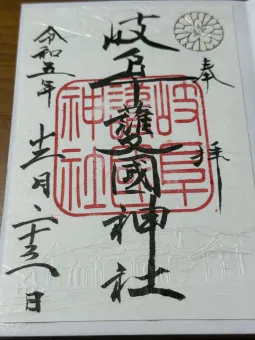 奉拝
岐阜護國神社
岐阜
護國
神社
令和五年
十二月二十三日